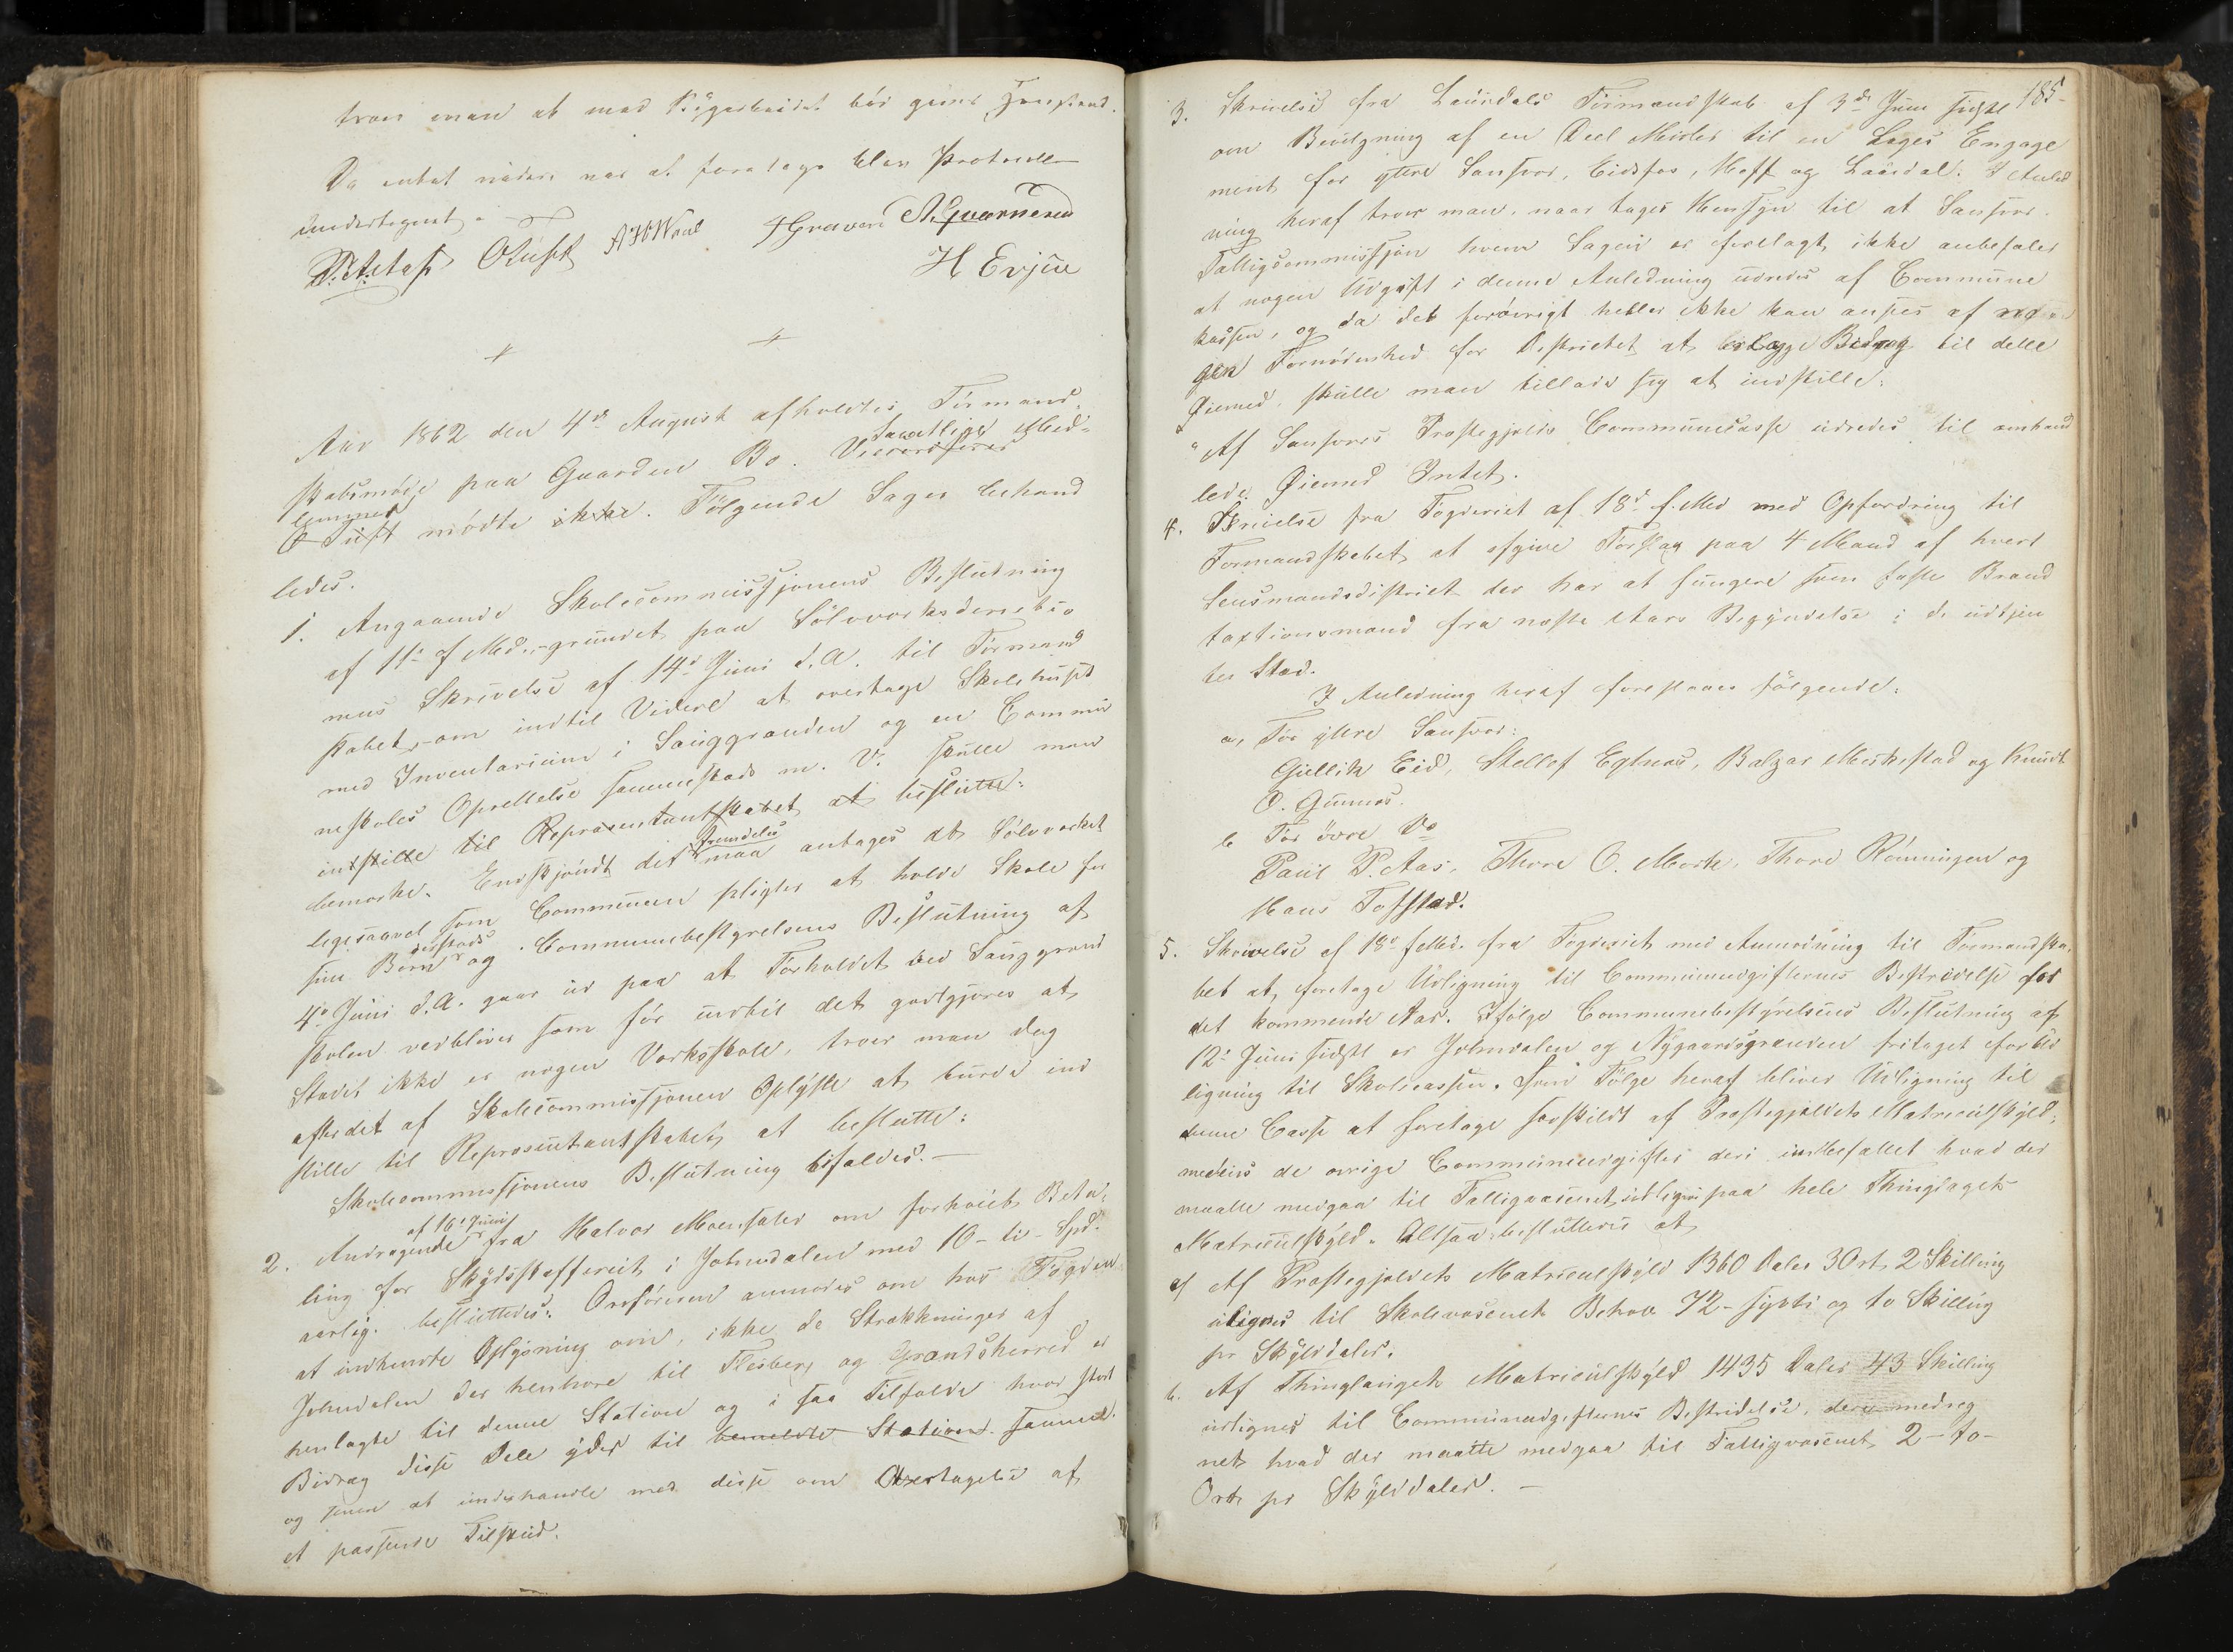 troer man at med Vejarbeidet bør gives Henstand.
Da intet videre var at foretage blev Protocollen
undertegnet.
O Tuft A H Waal H Graver A. Qværnerud
H Evjue
Aar 1862 den 4de August afholdtes Formand-
skabsmøde paa Gaarden Bo. Viceordfører Samtlige Med-
lemmer
O Tuft mødte ikke. Følgende Sager behand
ledes.
1. Angaaende Skolecommissjonens Beslutning
af 11te f Md. grundet paa Sölvværksdirectio
nens Skrivelse af 14de Juni d.A. til Formand
skabet, om indtil Videre at overtage Skolehuset
med Inventarium i Sauggranden og en Commu
neskoles Oprettelse sammestads m. V. skulle man
indstille til Repræsentantskabet at beslutte:
bemærke. Endskjöndt det fremdeles maa antages at Sölvværket
ligesaavel som Communen pligter at holde Skole for
sine Börn disstads og Communebestyrelsens Beslutning af
4de Juni d.A. gaar ud paa at Forholdet ved Sauggrand
skolen verbliver som för indtil det godtgjøres at
Stedet ikke er nogen Værksskole, troer man dog
efter det af Skolecommissjonen Oplyste at burde ind
stille til Repræsentantskabet at beslutte:
Skolecommissjonens Beslutning bifaldes. —
2. Andragende af 16de Juni fra Halvor Moensæter om forhøiet Beta-
ling for Skydsskafferiet i Johnsdalen med 10 - ti - Spd.
aarlig. besluttedes: Ordføreren anmodes om hos Fogden
at indhente Oplysning om, ikke de Strækninger af
Johnsdalen der henhøre til Flesberg og Grandsherred er
henlagte til denne Station og i saa Tilfælde hvor stort
Bidrag disse Dele yder til bemeldte Station samme.
og at underhandle med disse om Overtagelse af
et passende Tilskud.
185
3. Skrivelse fra Laurdals Formandskab af 3de Juni sidstl
om Bevilgning af en Deel Midler til en Læges Engage
ment for ytre Sansvær, Eidsfos, Hoff og Laurdal. I Anled
ning heraf troer man, naar tages Hensyn til at Sansvær
Fattigcommissjon hvem Sagen er forelagt, ikke anbefaler
at nogen Udgift i denne Anledning udredes af Commune
kassen, og da det forövrigt heller ikke kan ansees af
gen Fornödenhed for Distrietet at Bidrag til dette
Øiemed, skulle man tillade sig at indstille:
"Af Sansværs Præstegjelds Communecasse udredes til omhand
lede Øiemed Intet.
4. Skrivelse fra Fogderiet af 18de f. Md med Opfordring til
Formandskabet at afgive Forslag paa 4 Mænd af hvert
Lensmandsdistriet der har at fungere som faste Brand
taxtionsmænd fra næste Aars Begyndelse i de udtjen
tes Sted.
I Anledning heraf foreslaaes fölgende:
a, For ytre Sansvær:
Gullik Eid, Stellef Egtnæs, Balzar Meshestad og Knudt
O. Gunnes.
b For övre Do
Paul P. Aas, Thore O. Mork, Thore Rönningen og
Hans Tofstad.
5. Skrivelse af 18de f Md. fra Fogderiet med Anmodning til Formandska-
bet at foretage Udligning til Communeudgifternes Bestridelse for
det kommende Aar. Ifölge Communebestyrelsens Beslutning af
12te Juni sidstl er Johnsdalen og Nygaardsgranden fritaget for Ud
ligning til Skolecassen. Som Fölge heraf bliver Udligning til
denne Casse at foretage særskildt af Præstegjeldets Matriculskyld;
medens de övrige Communeudgifter deri indbefattet hvad der
maatte medgaa til Fattigvæsenet udlignes paa hele Thinglagets
Matriculskyld. Altsaa besluttedes at
a, Af Præstegjeldets Matriculskyld 1360 Daler 3 Ort 2 Skilling
udlignes til Skolevæsenets Behov 72 - sytti og to Skilling
pr Skylddaler.
b. Af Thinglauget Matriculskyld 1435 Daler 43 Skilling
udlignes til Communeudgifternes Bestridelse, deri medreg
net hvad der maatte medgaa til Fattigvæsenet 2 - to -
Ort pr Skylddaler. —